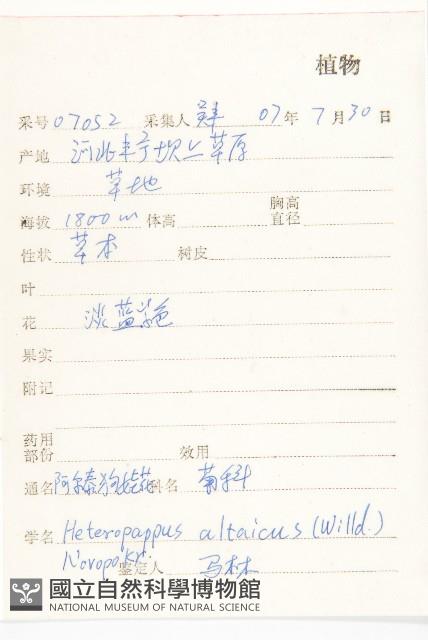 植物
采号 07052 采集人 07年 7月30日
产地 河北丰宁坝上草原
环境 草地
海拔 1800m 体高 胸高直径
性状 草本 树皮
叶
花 淡蓝紫色
果实
附记
药用部份 效用
通名 阿尔泰狗娃花 科名 菊科
学名 Heteropappus altaicus (Willd.)
Novopokr.
鉴定人 马林
國立自然科學博物館
NATIONAL MUSEUM OF NATURAL SCIENCE